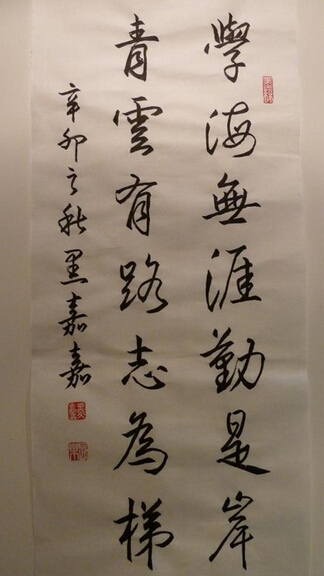 學海無涯勤是岸
青雲有路志為梯
辛卯之秋黑嘉嘉